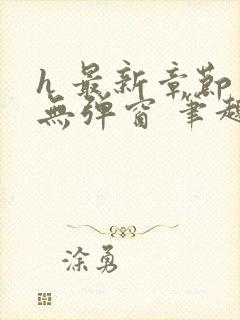 h 最新章節
無彈窗 筆趣
涂勇